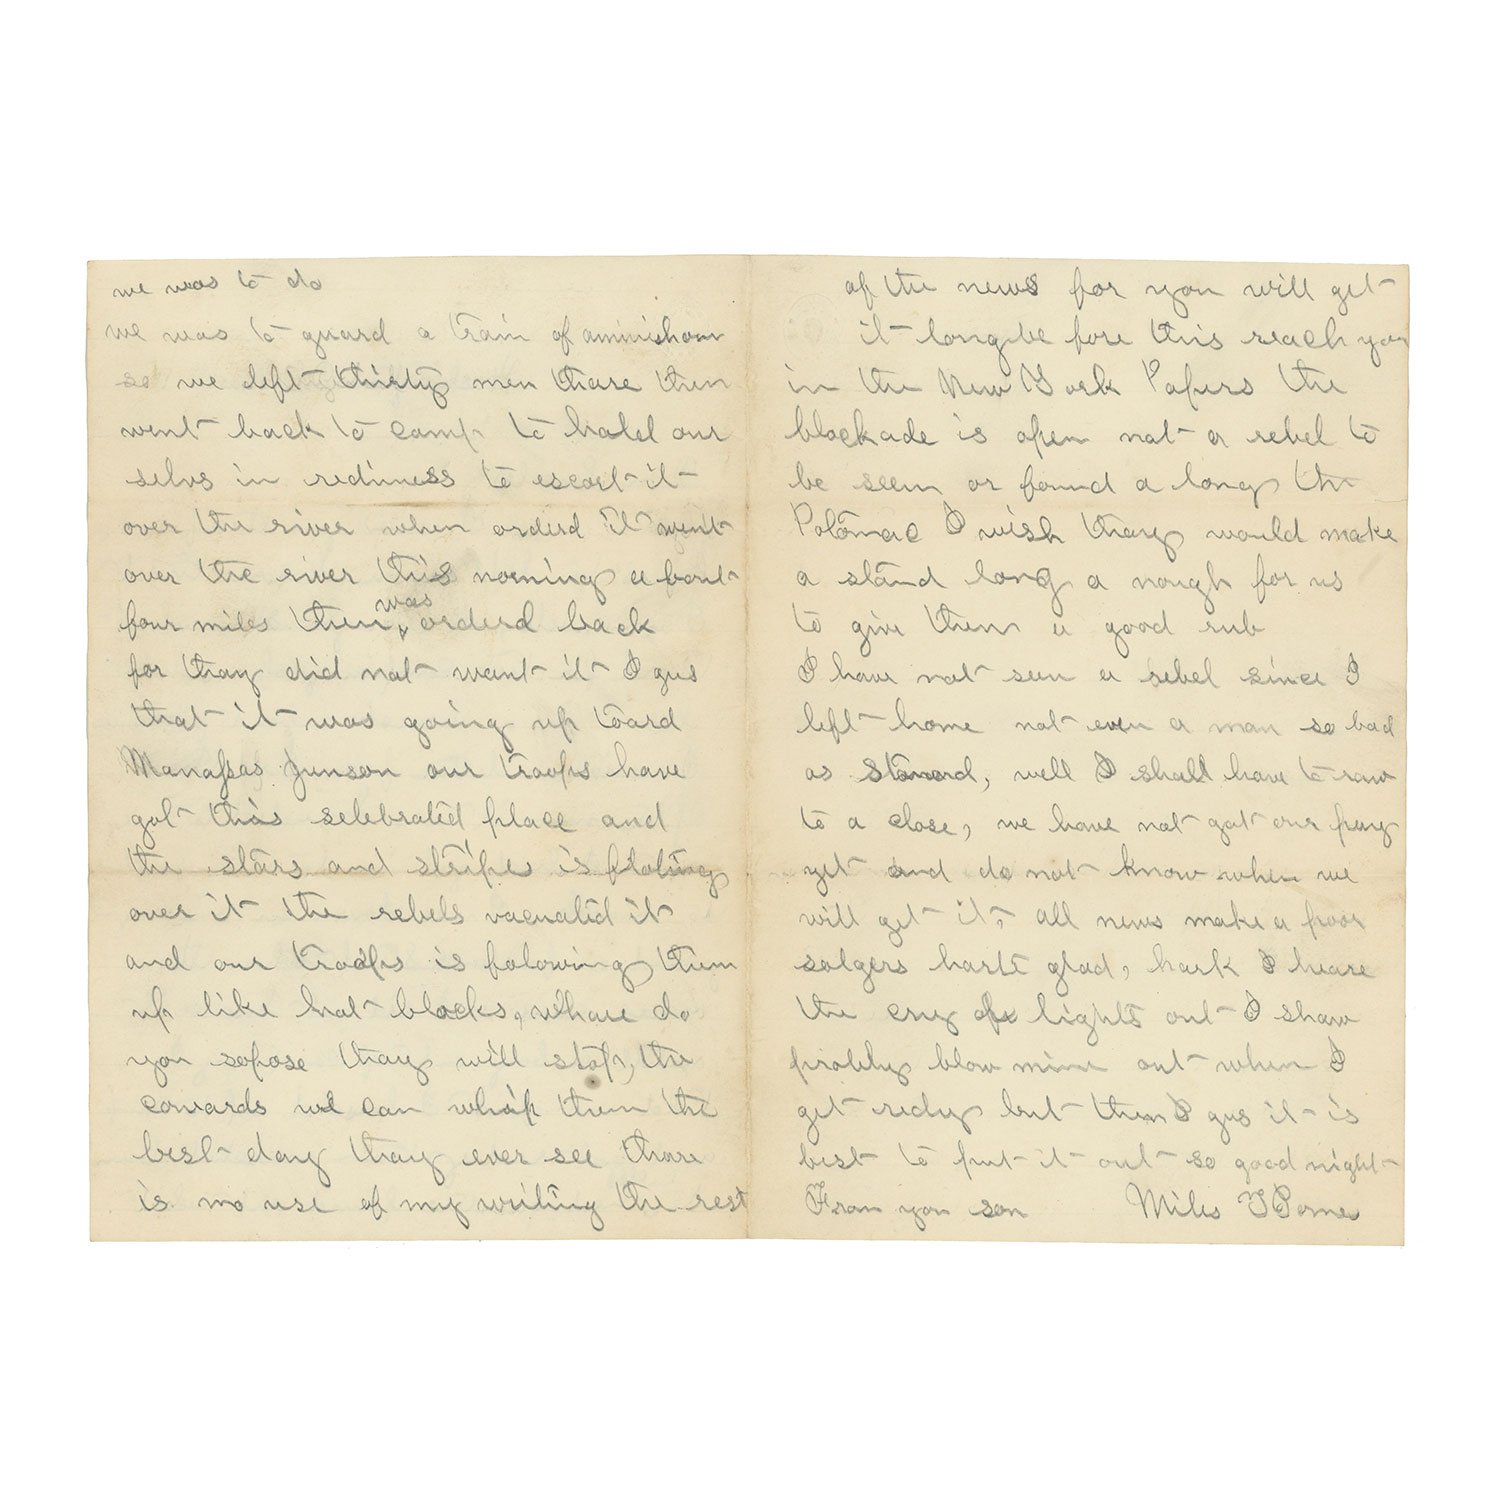 we was to do
we was to guard a train of aminishon
so we left thirty men thare then
went back to camp to holdd our
selvs in rediness to escort it
over the river when orderd it went
over the river this morning a bout
four miles then was orderd back
for thay did not want it I gus
that it was going up toard
Manassas Junson our troops have
got this selebrated place and
the stars and stripes is floting
over it the rebels vacuated it
and our troops is folowing them
up like hot blocks, Whare do
you sopose thay will stop, the
cowards we can whip them the
best day thay ever see thare
is no use of my writing the rest
of the news for you will get
it long be fore this reach you
in the New York Papers the
blockade is open not a rebel to
be seen or found a long the
Potomac I wish thay would make
a stand long a nough for us
to give them a good rub
I have not seen a rebel since I
left home not even a man so bad
as well I shall have to raw
to a close, we have not got our pay
yet and do not know when we
will get it, all news make a poor
solgers harte glad, hark I heare
the cry of lights out I shaw
probly blow mine out when I
get redy but then I gus it is
best to put it out so good night
From you son Miles